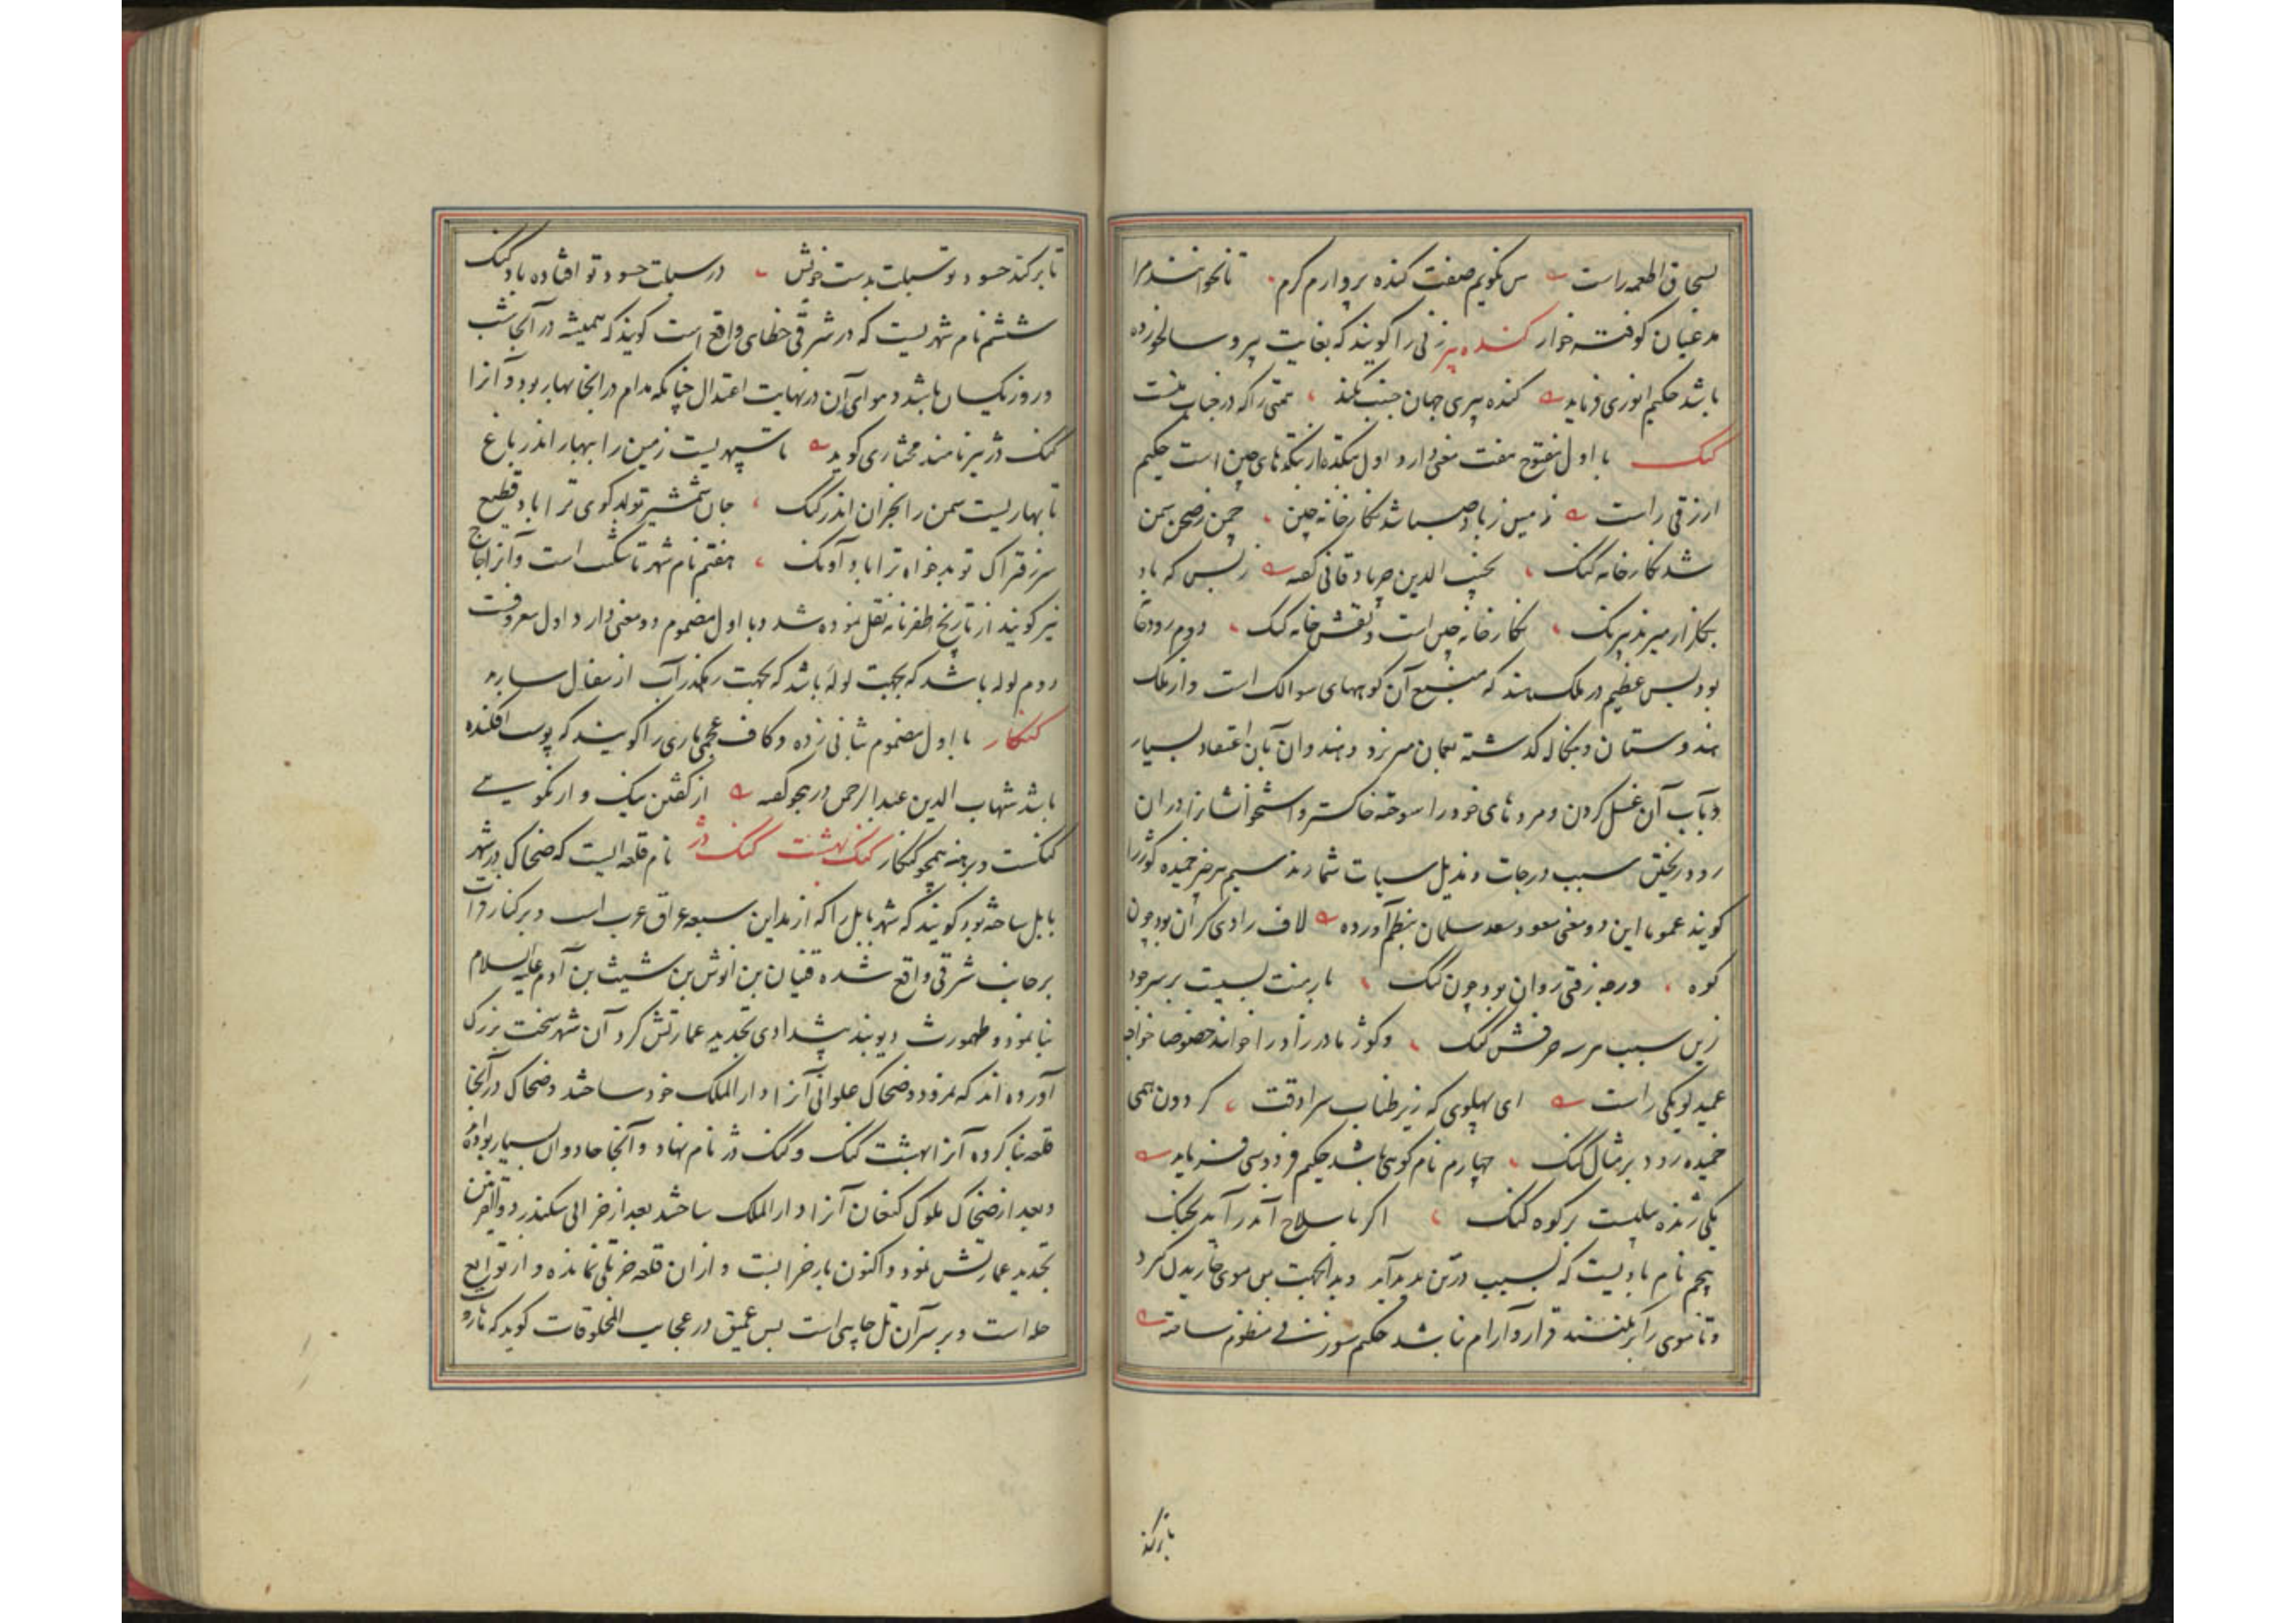 بسحاق اطعمه راست من نگویم صفت کنده بروارم کرم تا نخوانند مرا
مدعیان کوفته خوار کنده پیر زنی را گویند که بغایت پیر و سالخورده
باشد حکیم انوری فرماید کنده پیری جهان جنب نکند همتی را که در جناب تست
کنک با اول مفتوح هفت معنی دارد اول بتکده از بتکدهای چین است حکیم
ازرقی راست زمین ز باد صبا شد نکارخانه چین چمن ز صحن سمن
شد نکارخانه کنک نجیب الدین جربادقانی گفته ز بس که باد
بکلزار میزند نیرنک نکارخانه چین است و نقش خانه کنک دوم رودخا
بود بس عظیم در ملک هند که منبع آن کوههای سوالک است و از ملک
هندوستان و بنکاله گذشته بعمان میریزد و هندوان بآن اعتقاد بسیار
و بآب آن غسل کردن و مردهای خود را سوخته خاکستر و استخوانشانرا در آن
رود ریختن سبب درجات و تذیل سیات شمارند سیم هر چیز خمیده کوژ را
گویند عموما این دو معنی مسعود سعد سلمان بنظم آورده لاف رادی کر آن بود چون
کوه ورچه زفتی روان بود چون کنک بار منت بسیست بر سر جود
زین سبب شد فرقش کنک و کوژ مادرزاد را خوانند خصوصا خواجه
عمید لویکی راست ای پهلوی که زیر طناب سرادقت کردون همی
خمیده رود بر مثال کنک چهارم نام کوهی باشد حکیم فردوسی فرماید
یکی ژنده پیلیست بر کوه کنک اگر با سلاح آندر آید بجنک
پنجم نام بادیست که بسبب در تن پدید آید و بدانجهت بن موی خاریدن گیرد
و تا موی را برنکنند قرار و آرام نباشد حکیم سوزنی منظوم ساخته
تا برکند
تا برکند حسود تو سبلت بدست خویش در سبلت حسود تو افتاده باد کنک
ششم نام شهریست که در شرقی خطای واقع است گویند که همیشه در آنجا شب
و روز یکسان باشد و هوای آن در نهایت اعتدال چنانکه مدام در آنجا بهار بود و آنرا
کنک دژ نیز نامند مختاری گوید تا سپهریست زمین را ببهار اندر باغ
تا بهاریست سمن را بخزان اندر کنک جان شمشیر تو بدگوی ترا باد قطیع
سر فتراک تو بدخواه ترا باد آونک هفتم نام شهر تاشکند است و آنرا جاج
نیز گویند از تاریخ ظفرنامه نقل نموده شد و با اول مضموم دو معنی دارد اول معروفست
دوم لوله باشد که بجهت لوله باشد که بجهت رهگذر آب از سفال سازند
کنکار با اول مضموم بثانی زده و کاف عجمی ماری را گویند که پوست افکنده
باشد شهاب الدین عبدالرحمن در هجو گفته از گفتن نیک و از نکویی
کنکست و برهنه همچو کنکار کنک بهشت کنک دژ نام قلعه ایست که ضحاک در شهر
بابل ساخته بود گویند که شهر بابل را که از مداین سبعه عراق عرب است و بر کنار فرات
بر جانب شرقی واقع شده قینان بن انوش بن شیث بن آدم علیه السلام
بنا نمود و طهمورث دیوبند پیشدادی تجدید عمارتش کرد آن شهر سخت بزرگ
آورده اند که نمرود و ضحاک علوانی آنرا دارالملک خود ساختند و ضحاک در آنجا
قلعه بنا کرده آنرا بهشت کنک و کنک دژ نام نهاد و آنجا جادوان بسیار بوده
و بعد از ضحاک ملوک کنعان آنرا دارالملک ساختند بعد از خرابی سکندر ذوالقرنین
تجدید عمارتش نمود و اکنون باز خرابست و از آن قلعه جز تلی نمانده و از توابع
حله است و بر سر آن تل چاهی است بس عمیق در عجایب المخلوقات گوید که هاروت